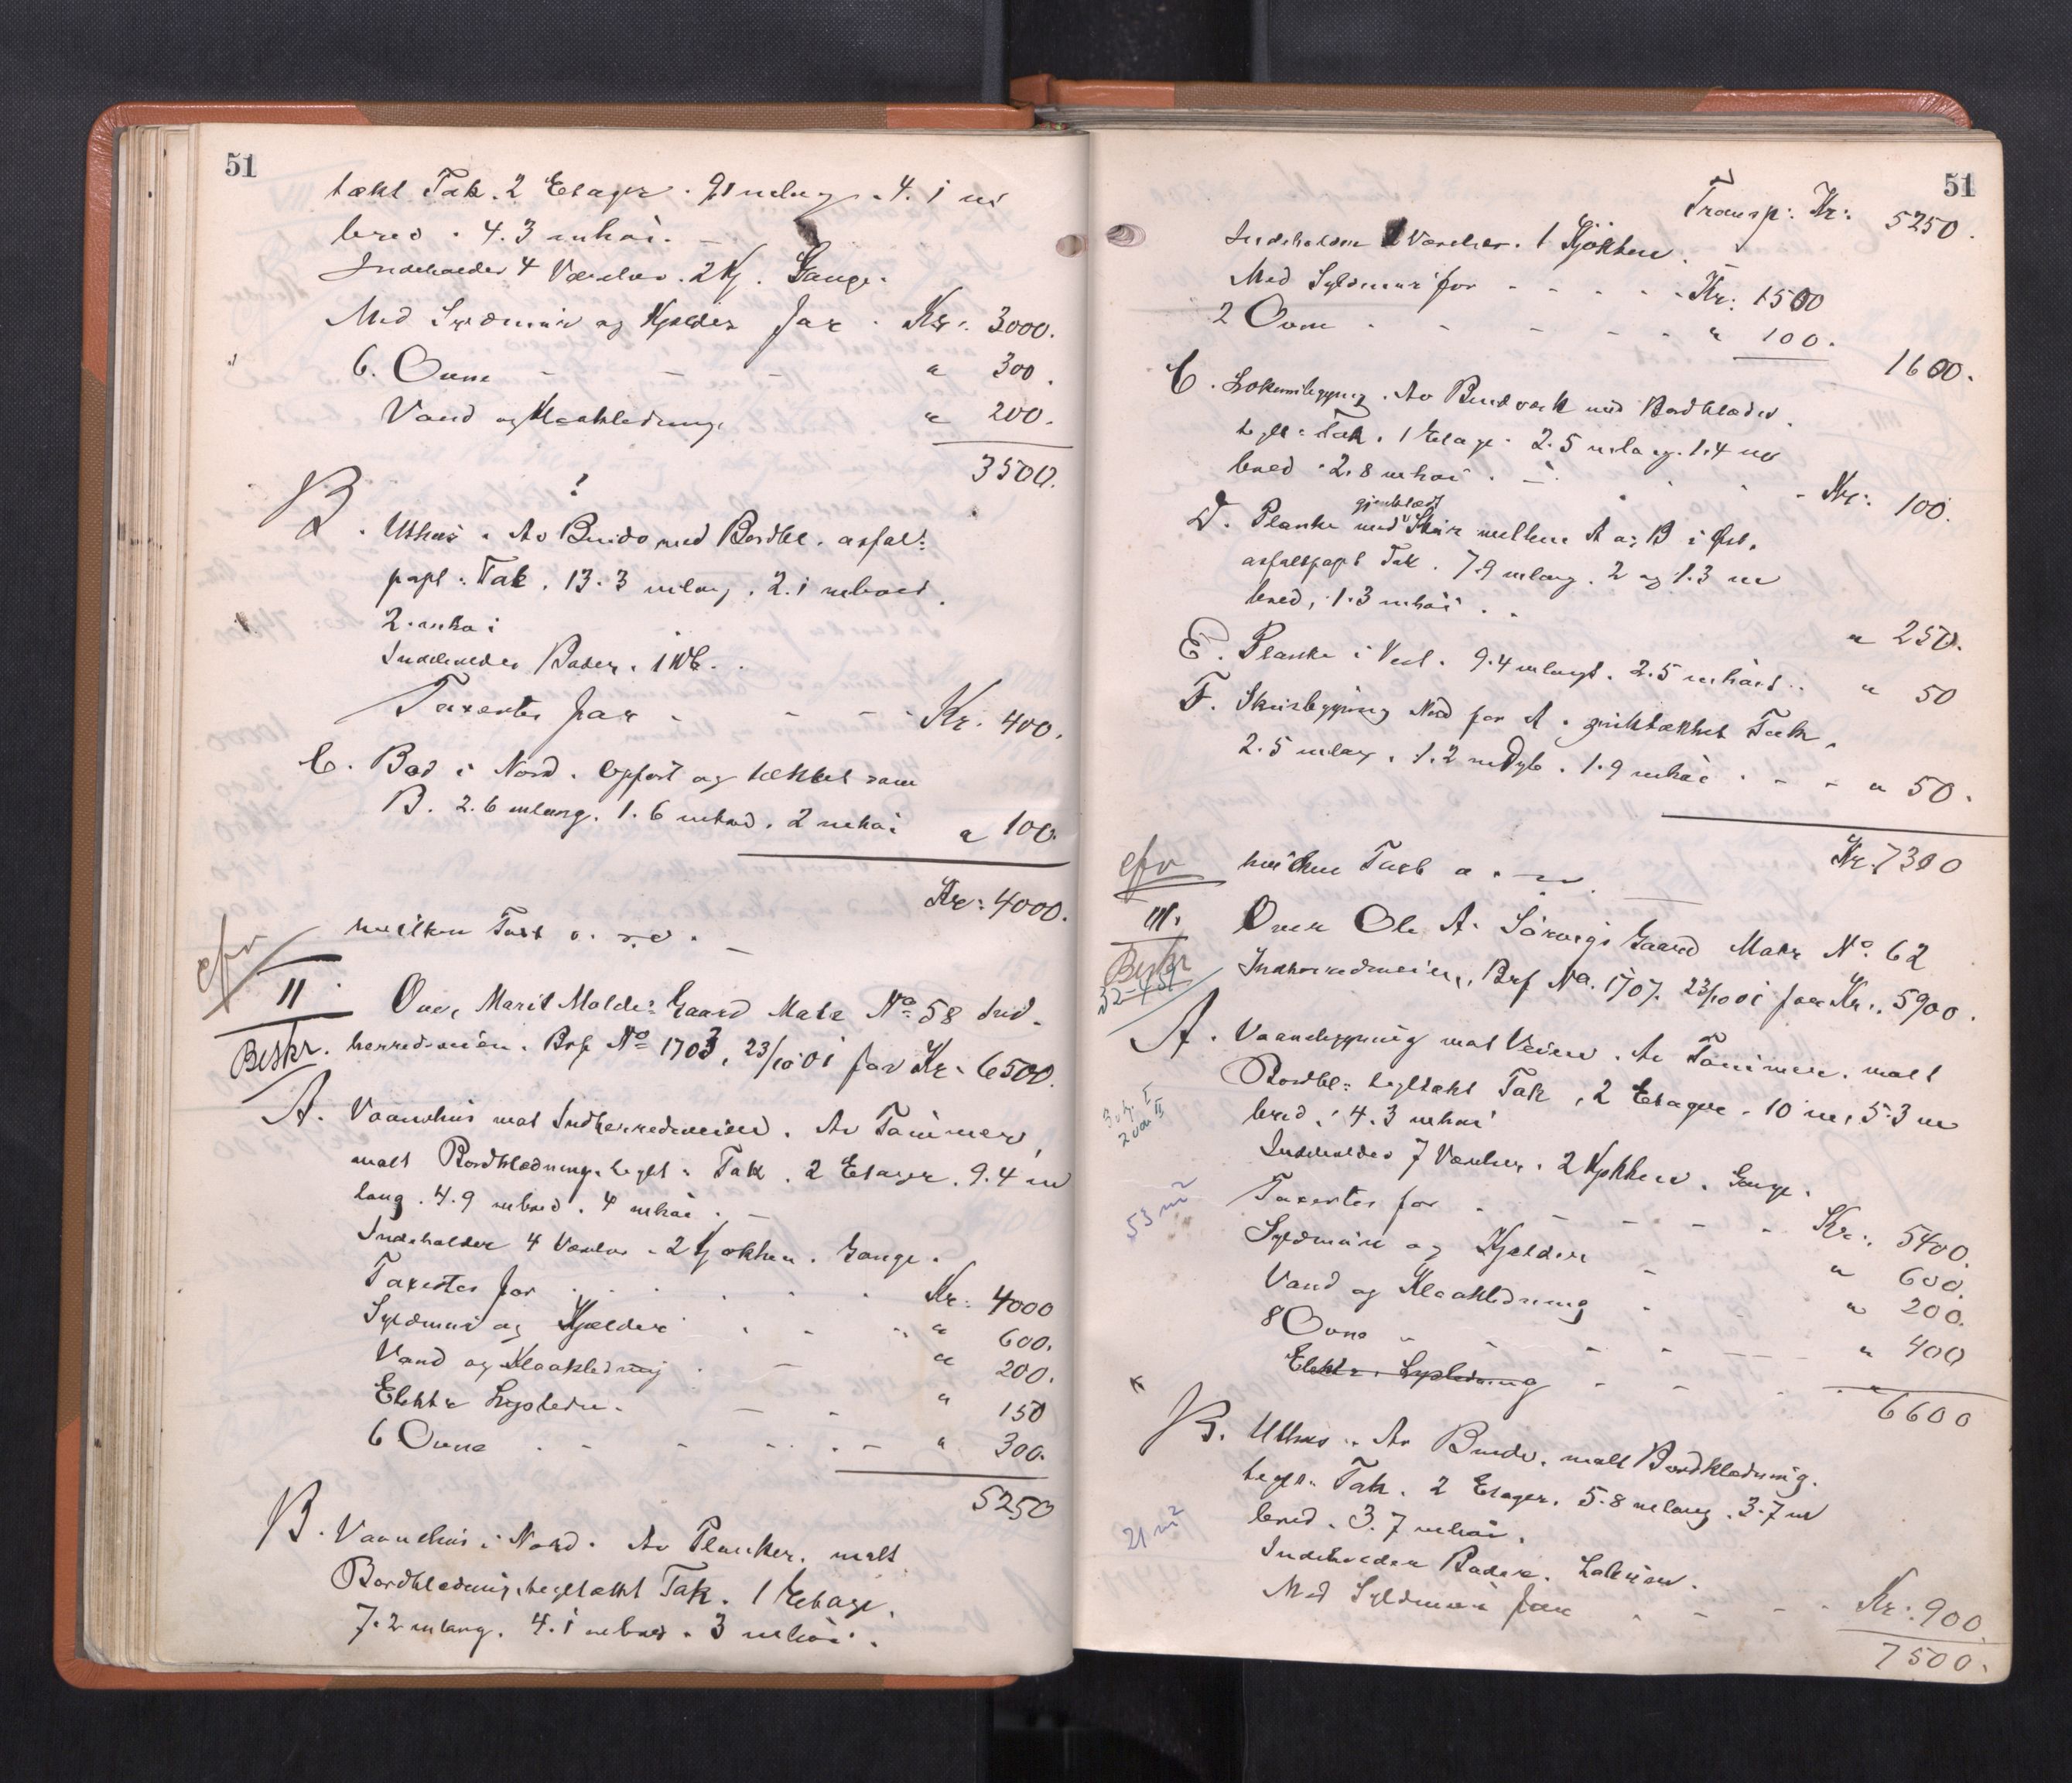 51
tækt Tak. 2 Etager. 9.1 m lang. 4.1 m
bred. 4.3 m høi. –
Indeholder 4 Værelser. 2 Kj. Gange.
Med Syldmur og Kjelder for . Kr. 3000.
6. Ovne – – – " 300.
Vand og Kloakledning " 200.
3500.
B. Uthus. Av Bindv. med Bordkl. asfal:
papt: Tak. 13.3 m lang. 2.1 m bred.
2. m høi
Indeholder Boder. 1 WC.
Taxertes for – – – – Kr. 400.
C. Bod i Nord. Opført og tækket som
B. 2.6 m lang. 1.6 m bred. 2 m høi " 100.
Kr: 4000.
hvilken Taxt o. s. v. –
efv
II. Over Marit Molde: Gaard Matr No 58 Ind-
Beskr. herredsveien. Brf No 1703, 23/10 01 for Kr. 6500.
A. Vaanehus mot Indherredsveien. Av Tømmer,
malt Bordklædning, teglt: Tak. 2 Etager. 9.4 m
lang. 4.9 m bred. 4 m høi. –
Indeholder 4 Værelser. 2 Kjøkken. Gange.
Taxertes for . . . . . Kr: 4000
Syldmur og Kjelder . . . " 600.
Vand og Kloakledning . – " 200.
Elektr Lysledn. – – " 150
6 Ovne . – – – . – " 300.
5250
B. Vaanehus i Nord. Av Planker, malt
Bordklædning, tegltækt Tak. 1 Etage.
7.2 m lang. 4.1 m bred. 3 m høi.
51
Transp: Kr: 5250.
Indeholder 2 Værelser. 1 Kjøkken.
Med Syldmur for – – – – – Kr: 1500
2 Ovne . – – – – – " 100.
1600.
C. Lokumsbygging. Av Bindverk med Bordklædn.
teglt: Tak. 1 Etage. 2.5 m lang. 1.4 m
bred. 2.8 m høi. – . . . – Kr: 100.
D. Planke med Skur mellem A og B i Øst,
asfaltpapt Tak. 7.9 m lang. 2 og 1.3 m
bred, 1.3 m høi . . " 250.
E. Planke i Vest. 9.4 m langt. 2.5 m høit.. " 50
F. Skurbygging Nord for A. Tak.
2.5 m lang. 1.2 m dyb. 1.9 m høi . – – " 50.
Kr. 7300
efv hvilken Taxt o. s. v.
III. Over Ole A. Sørvigs Gaard Matr No 62
Beskr Indherredsveien, Brf No. 1707. 23/10 01 for Kr. 5900.
A. Vaanebygning mot Veien. Av Tømmer, malt
Bordkl: tegltækt Tak, 2 Etager. 10 m, 5.3 m
bred, 4.3 m høi
Indeholder 7 Værelser. 2 Kjøkken. Gange.
53 m2
Taxertes for . . – – – – Kr. 5400.
Syldmur og Kjelder – " 600.
Vand og Kloakledning . – " 200.
8 Ovne – – – – – " 400
Elektr. Lysledning – – –
6600
B. Uthus. Av Bindv. malt Bordklædning.
teglt: Tak. 2 Etager. 5.8 m lang. 3.7 m
21 m2
bred. 3.7 m høi.
Indeholder Boder. Lokum.
Med Syldmur for . – – – Kr: 900.
7500.